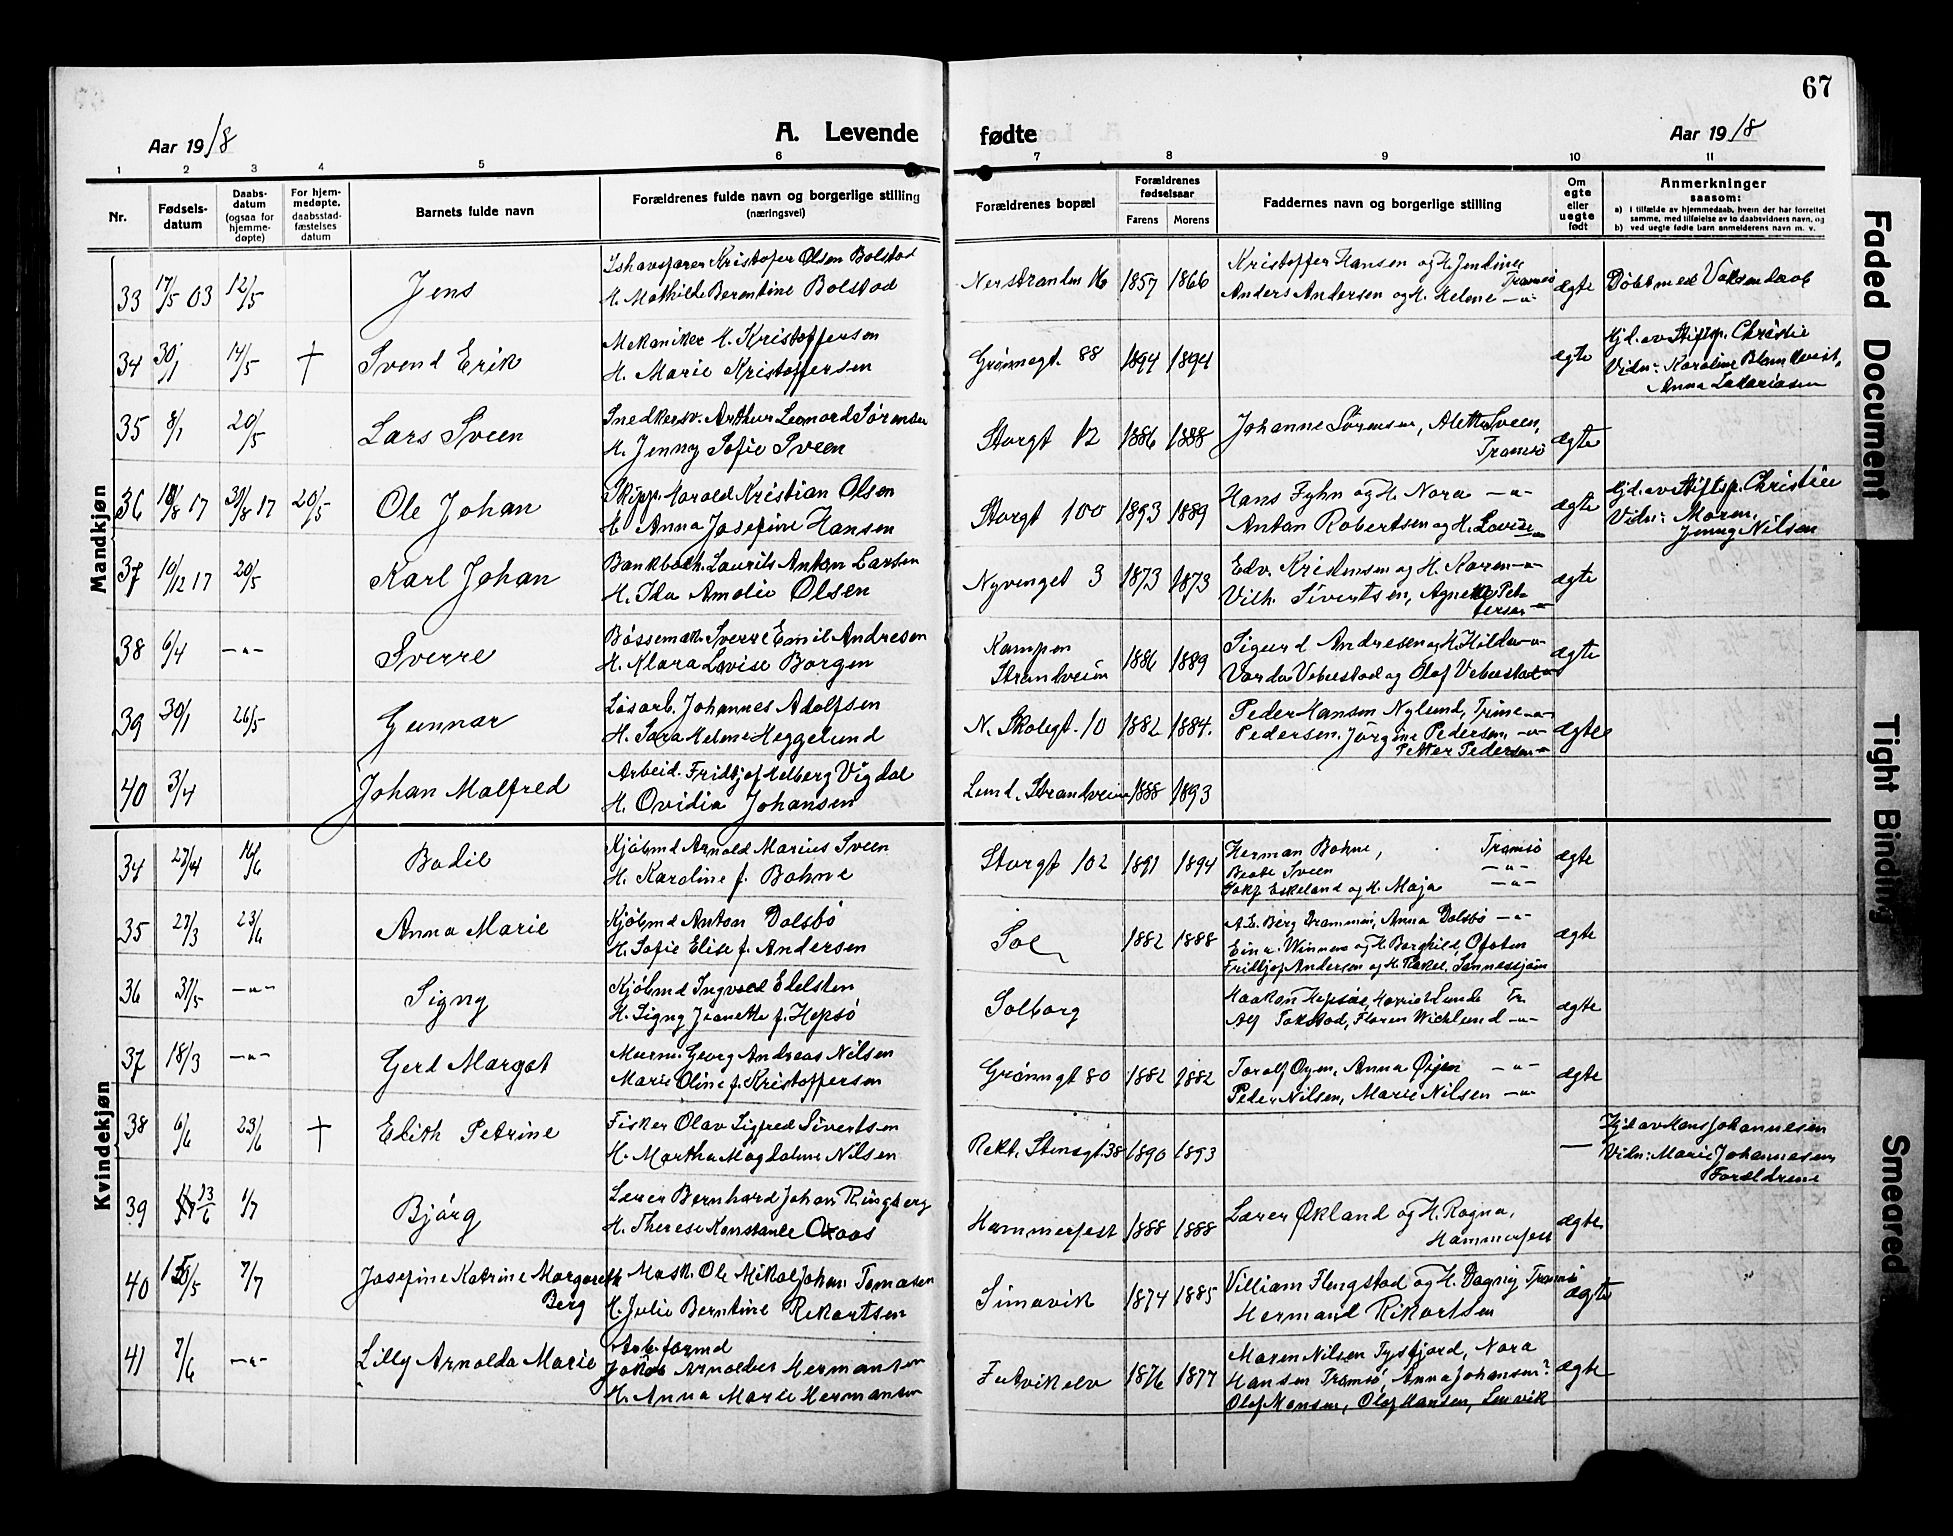 67
Aar 1918
A. Levende fødte
Aar 1918
1 2 3 4 5 6 7 8 9 10 11
Nr.
Fødsels-
datum
Daabs-
datum
(ogsaa for
hjemme-
døpte)
For hjem-
medøpte,
daabsstad-
fæstelses
datum
Barnets fulde navn
Forældrenes fulde navn og borgerlige stilling
(næringsvei)
Forældrenes bopæl
Forældrenes
fødselsaar
Farens Morens
Faddernes navn og borgerlige stilling
Om
egte
eller
uegte
født
Anmerkninger
saasom:
a) I tilfælde av hjemmedaab, hvem der har forrettet
samme, med tilføielse av to daabsvidners navn, og
b) ved uegte fødte barn anmelderens navn m. v.
Mandkjøn
33 17/5 03 12/5 Jens
Ishavsfarer Kristofer Olsen Bolstad
H. Mathilde Berentine Bolstad
Nerstranden 16 1857 1866
Kristoffer Hansen og H. Jentine Tromsø
Anders Andersen og H. Helene -"-
ægte
Døbt med Voksendaab
34 30/1 14/5 † Svend Erik
Mekaniker H. Kristoffersen
H. Marie Kristoffersen
Grønnegt. 88 1894 1894
ægte
Hjd. av Stiftsp. Christie
Vidn: Karoline Blomkvist,
Anna Zakariasen
35 8/1 20/5 Lars Sveen
Snedkersv. Arthur Leonard Sørensen
H. Jenny Sofie Sveen
Storgt 12 1886 1888
Johanne Sørensen, Alette Sveen,
Tromsø
ægte
36 18/8 17 30/8 17 20/5 Ole Johan
Skipp. Harald Kristian Olsen
H. Anna Josefine Hansen
Storgt 100 1893 1889
Hans Fyhn og H. Nora -"-
Anton Robertsen og H. Lovise -"-
ægte
Hjd. av Stiftsp. Christie
Vidn: Moren,
Jenny Nilsen
37 10/12 17 20/5 Karl Johan
Bankbok. Laurits Anton Larsen
H. Ida Amalie Olsen
Nyvenget 3 1873 1873
Edv. Kristensen og H. Karen -"-
Vilh. Sivertsen, Agnete Pet-
tersen -"-
ægte
38 6/4 -"- Sverre
Bøssemak. Sverre Emil Andresen
H. Klara Lovise Borgen
Kampen
Strandveien
1886 1889
Sigurd Andresen og H. Hilda -"-
og Olaf
ægte
39 30/1 26/5 Gunnar
Løsarb. Johannes Adolfsen
H. Sara Helene Heggelund
N. Skolegt. 10 1882 1884.
Peder Hansen Nylund, Trine -"-
Pedersen. Jørgine Pedersen, -"-
Petter Pedersen -"-
ægte
40 3/4 Johan Malfred
Arbeid. Fridtjof Helberg Vigdal
H. Ovidia Johansen
Lund, Strandveien 1888 1893
Kvindekjøn
34 27/4 16/6 Bodil
Kjøbmd Arnold Marius Sveen
H. Karoline f. Bohne
Storgt 102 1891 1894
Herman Bohne, Tromsø
Beate Sveen -"-
Eskeland og H. Maja -"-
ægte
35 27/3 23/6 Anna Marie
Kjøbmd Anton Dalsbø
H. Sofie Elise f. Andersen
Sol 1882 1888
Berg Drammen, Anna Dalsbø -"-
og H. Borghild, Ofoten
Fridtjof Andersen og H. Rakel, Sannessjøen
ægte
36 31/5 -"- Signy
Kjøbmd Ingvald Edelsten
H. Signy Jeanette f. Hepsø
Solborg
Haakon Hepsøe, Harriet Lunde Tr.
Alf Takstad, Floren Wicklund -"-
ægte
37 18/3 -"- Gerd Margot
Murm. Georg Andreas Nilsen
Marie Oline f. Kristoffersen
Grønnegt 80 1882 1882
Toralf Oyen, Anna Øyen -"-
Peder Nilsen, Marie Nilsen -"-
ægte
38 6/6 23/6 † Edith Petrine
Fisker Olav Sigfred Sivertsen
H. Martha Magdalene Nilsen
Rekt. Stensgt. 38 1890 1893
—
Hjd av Hans Johannesen
Vidn: Marie Johannesen,
Forældrene
39 13/6 1/7 Bjørg
Lærer Bernhard Johan Ringberg
H. Therese Konstanse Oxaas
Hammerfest 1888 1888
Lærer Økland og H. Ragna,
Hammerfest
ægte
40 15/5 7/7 Josefine Katrine Margareth
Berg
Mask. Ole Mikal Johan Tomasen
H. Julie Berntine Rekartsen
Simavik 1874 1885
Villiam Flengstad og H. Dagny Tromsø
Hermand Rikartsen
ægte
41 7/6 -"- Lilly Arnolda Marie
Arb.formd
Jakob Arnoldus Hermansen
H. Anna Marie Hermansen
Futvikelv 1876 1877
Maren Nilsen Tysfjord, Nora
Hansen Tromsø, Anna Johansen?
Olaf Hansen, Olaf Hansen, Lenvik
ægte
Faded Document
Tight Binding
Smeared